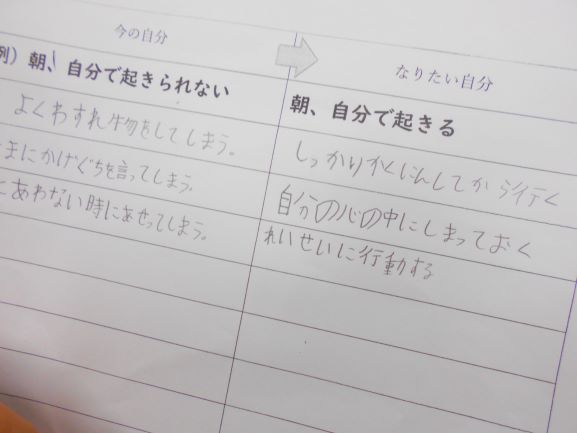 今の自分
なりたい自分
例）朝、自分で起きられない
朝、自分で起きる
よくわすれ物をしてしまう。
しっかりかくにんしてから行く
まにかげぐちを言ってしまう。
自分の心の中にしまっておく
にあわない時にあせってしまう。
れいせいに行動する